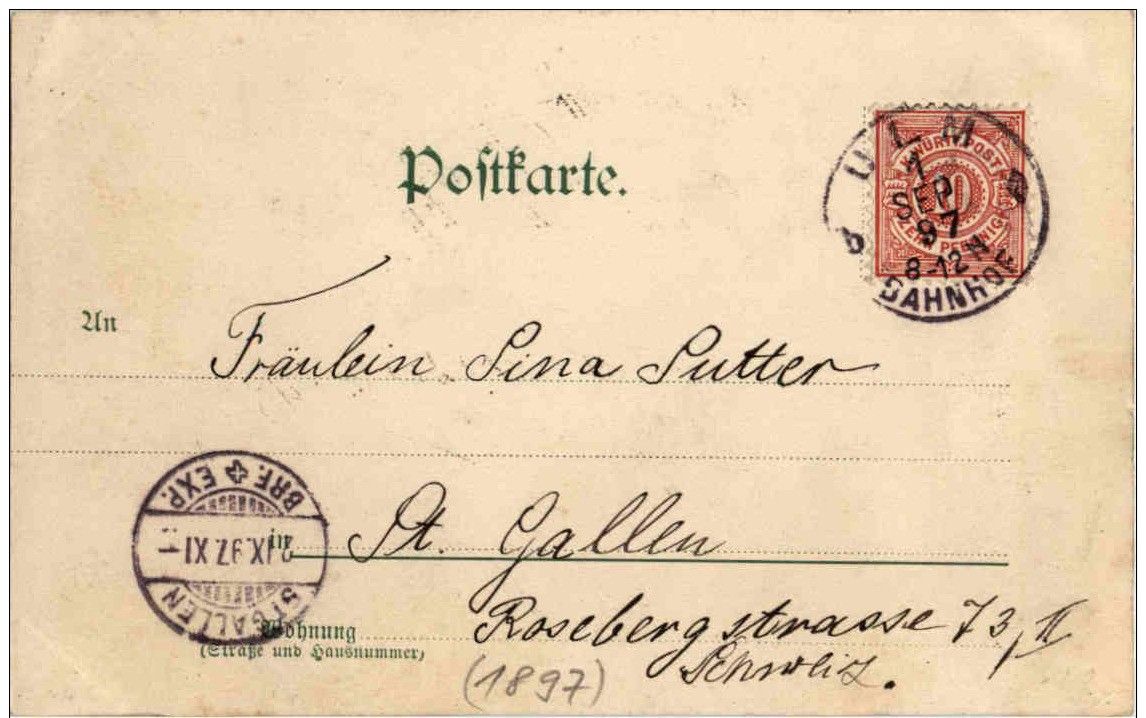 Postkarte.
ULM
1
SEP
97
8-12 N
BAHNHOF
K. WÜRTT. POST
10
ZEHN PFENNIG
An
Fräulein Lina Sutter
in St. Gallen
BRF. EXP.
2.IX.97.XI
ST GALLEN
Wohnung
(Straße und Hausnummer)
Rosebergstrasse 73, II
Schweiz.
(1897)